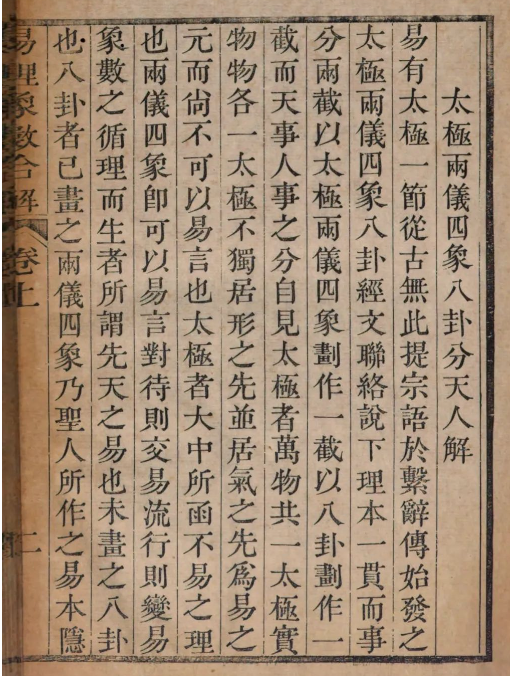 太極兩儀四象八卦分天人解
易有太極一節從古無此提宗語於繫辭傳始發之
太極兩儀四象八卦經文聯絡說下理本一貫而事
分兩截以太極兩儀四象劃作一截以八卦劃作一
截而天事人事之分自見太極者萬物共一太極實
物物各一太極不獨居形之先並居氣之先爲易之
元而尙不可以易言也太極者大中所函不易之理
也兩儀四象卽可以易言對待則交易流行則變易
象數之循理而生者所謂先天之易也未畫之八卦
也八卦者已畫之兩儀四象乃聖人所作之易本隱
易理象數合解 卷上 二